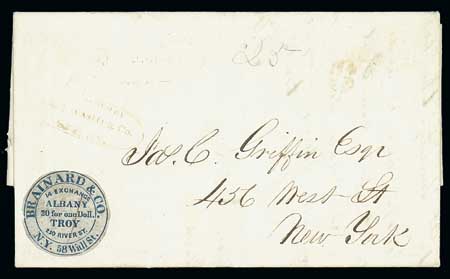 25
Jas. C. Griffin Esqr
456 West St
New York
BRAINARD & CO.
14 EXCHANGE
ALBANY
20 for one Doll.
TROY
230 RIVER ST.
N.Y. 58 Wall St.